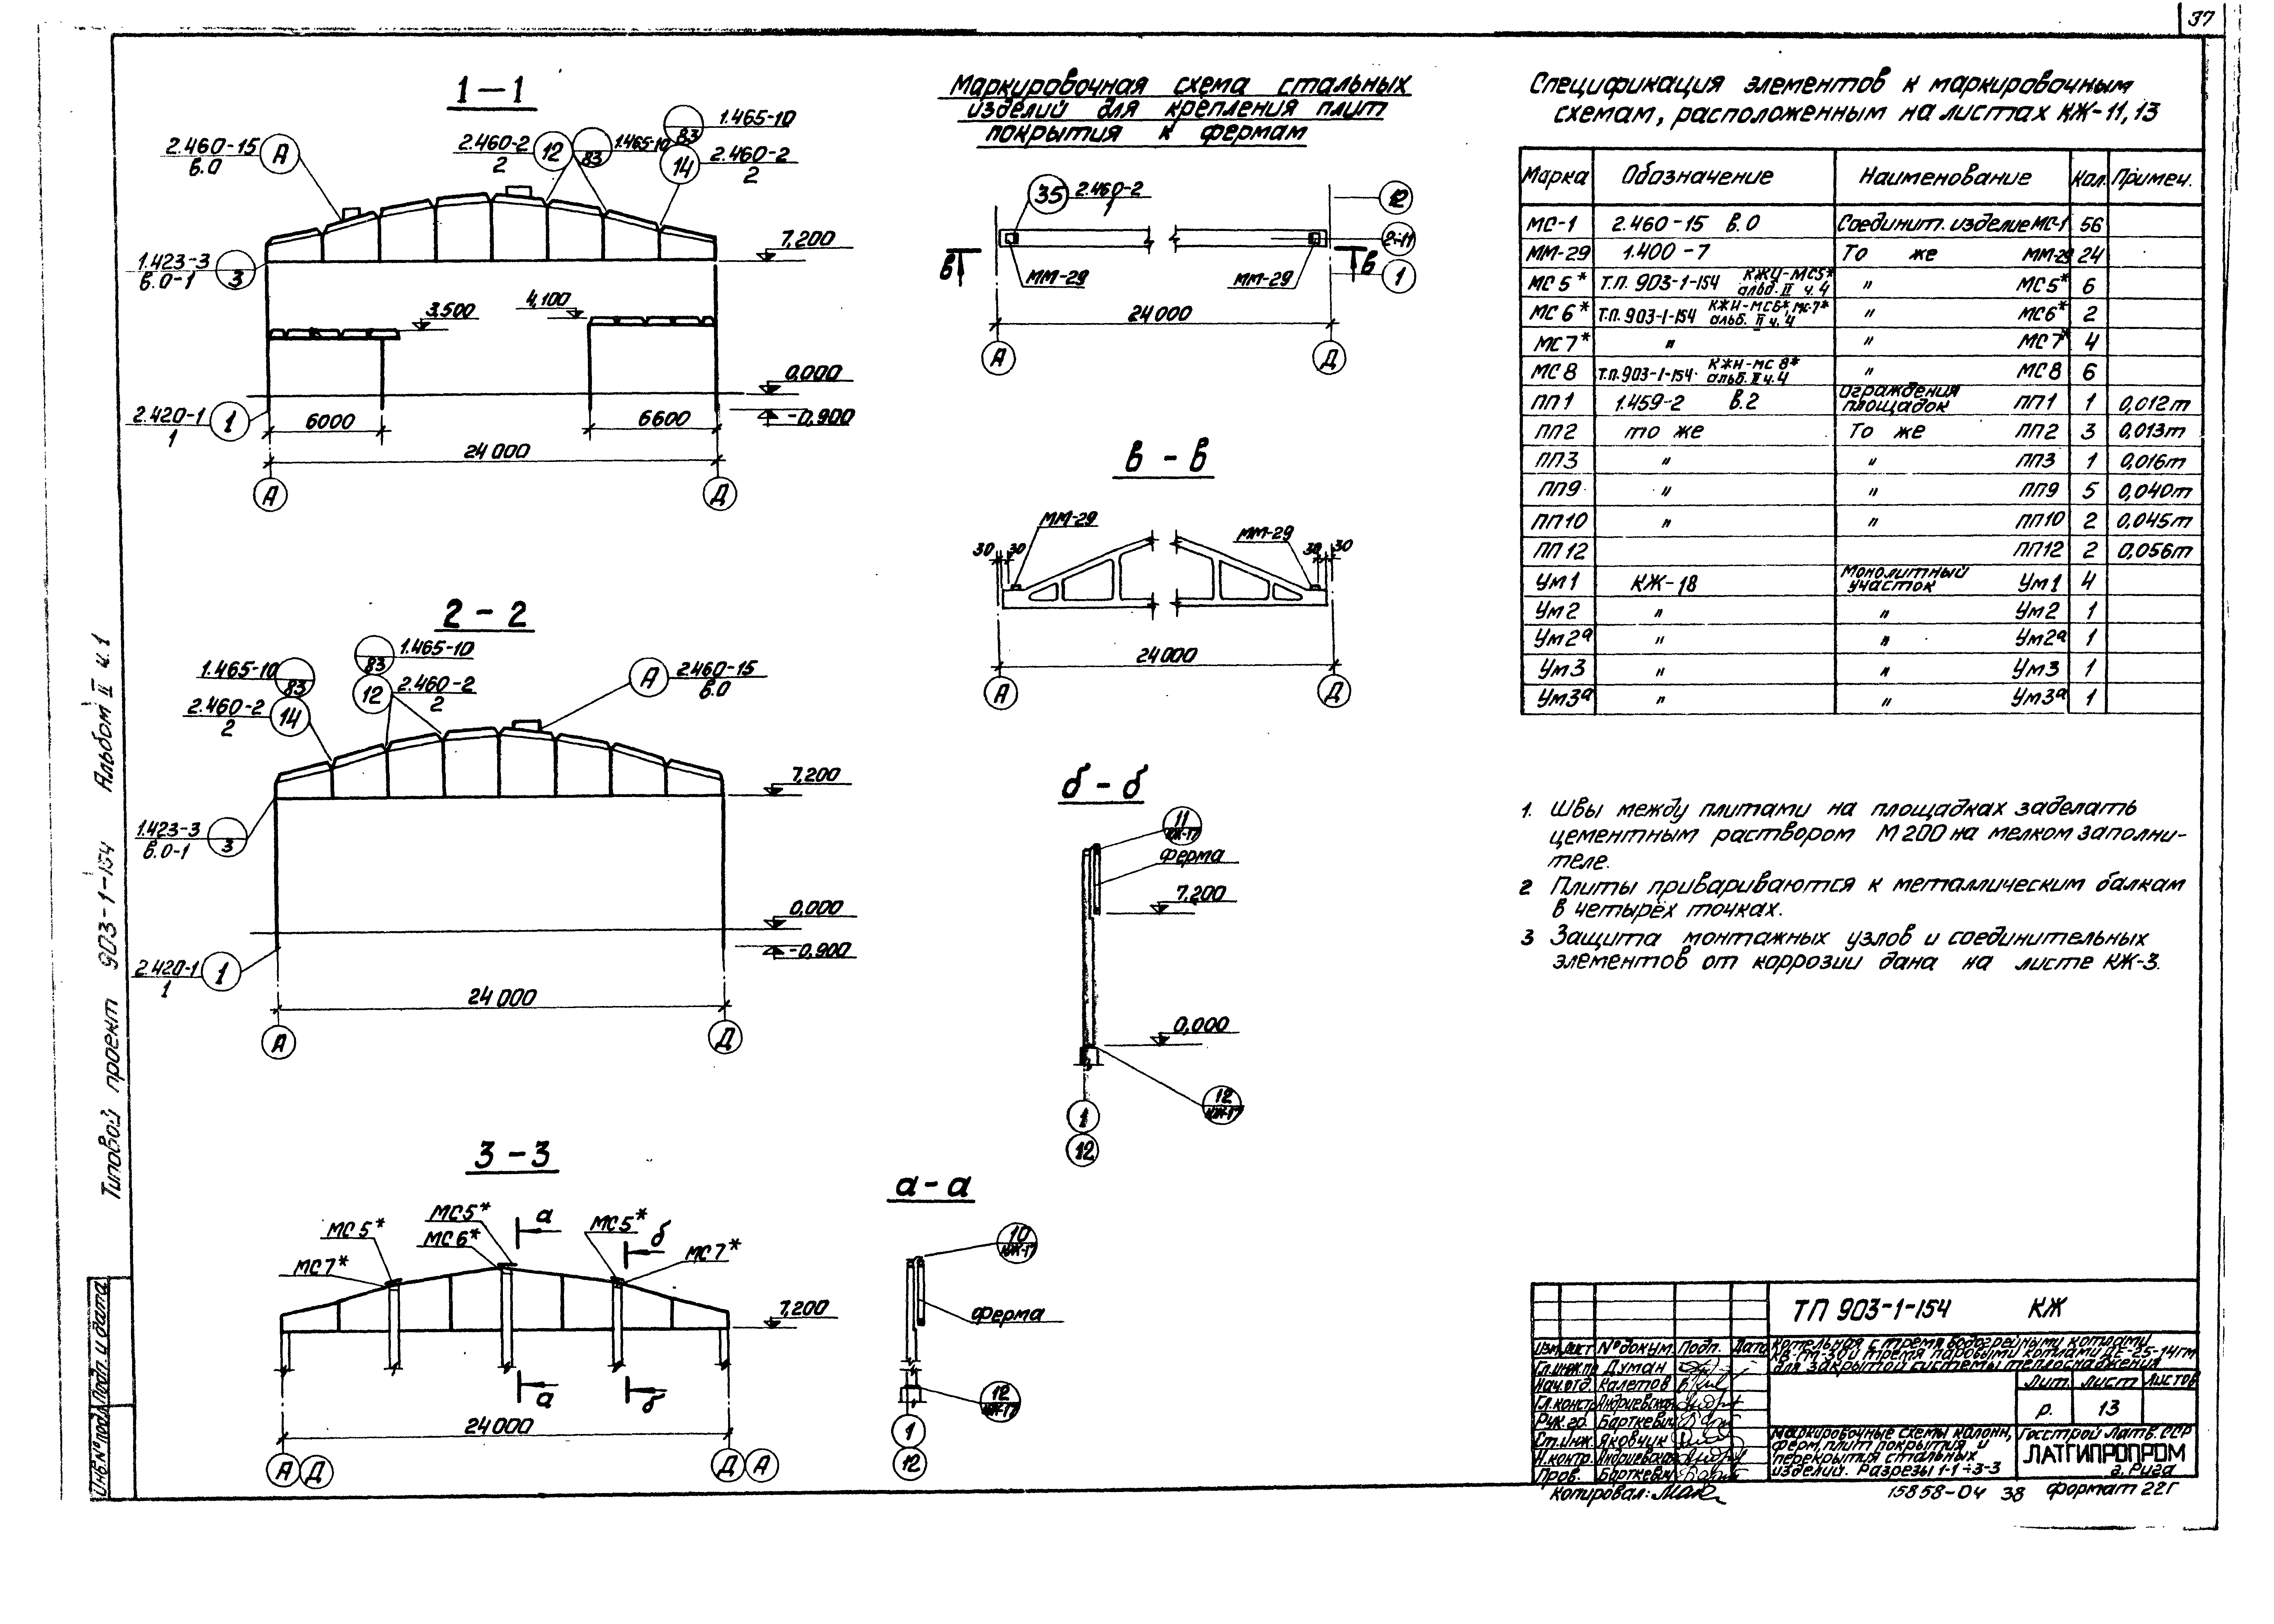 37
1-1
2.460-15
в.0
А
2.460-2
2
12
83
1.465-10
83
1.465-10
14
2.460-2
2
7,200
1.423-3
в.0-1
3
3.500
4,100
0,000
-0,900
2.420-1
1
1
6000
6600
24000
А
Д
2-2
1.465-10
83
2.460-2
2
14
83
1.465-10
12
2.460-2
2
А
2.460-15
в.0
7,200
1.423-3
в.0-1
3
0,000
-0,900
2.420-1
1
1
24000
А
Д
3-3
МС5*
МС7*
МС5*
МС6*
а
МС5*
б
МС7*
7,200
а
б
24000
А Д
Д А
Маркировочная схема стальных
изделий для крепления плит
покрытия к фермам
35
2.460-2
1
12
2÷11
1
в
в
ММ-29
ММ-29
24000
А
Д
в-в
ММ-29
ММ-29
30 30
30 30
24000
А
Д
б-б
11
КЖ-17
ферма
7,200
0,000
12
КЖ-17
1
12
а-а
10
КЖ-17
ферма
12
КЖ-17
1
12
Спецификация элементов к маркировочным
схемам, расположенным на листах КЖ-11,13
Марка Обозначение Наименование Кол. Примеч.
МС-1 2.460-15 в.0 Соединит. изделие МС-1 56
ММ-29 1.400-7 То же ММ-29 24
МС5* Т.П. 903-1-154 КЖИ-МС5* альб. II ч.4 " МС5* 6
МС6* Т.П. 903-1-154 КЖИ-МС6*, МС-7* альб. II ч.4 " МС6* 2
МС7* " " МС7* 4
МС8 Т.П. 903-1-154 КЖИ-МС8* альб. II ч.4 " МС8 6
ПП1 1.459-2 в.2 Ограждения площадок ПП1 1 0,012т
ПП2 то же То же ПП2 3 0,013т
ПП3 " " ПП3 1 0,016т
ПП9 " " ПП9 5 0,040т
ПП10 " " ПП10 2 0,045т
ПП12 ПП12 2 0,056т
Ум1 КЖ-18 Монолитный участок Ум1 4
Ум2 " " Ум2 1
Ум2а " " Ум2а 1
Ум3 " " Ум3 1
Ум3а " " Ум3а 1
1. Швы между плитами на площадках заделать
цементным раствором М200 на мелком заполни-
теле.
2 Плиты привариваются к металлическим балкам
в четырёх точках.
3 Защита монтажных узлов и соединительных
элементов от коррозии дана на листе КЖ-3.
Типовой проект 903-1-154 Альбом II ч.1
Инв.№подл. Подп. и дата
ТП 903-1-154 КЖ
Изм. Лист №докум. Подп. Дата
Гл.инж.пр. Думан
Нач.отд. Калетов
Гл.констр. Андриевская
Рук.гр. Барткевич
Ст.инж. Яковчик
Н.контр. Андриевская
Пров. Барткевич
Котельная с тремя водогрейными котлами
КВ-ГМ-30 и тремя паровыми котлами ДЕ-25-14ГМ
для закрытой системы теплоснабжения
Лит. Лист Листов
р. 13
Маркировочные схемы колонн,
ферм, плит покрытия и
перекрытия стальных
изделий. Разрезы 1-1÷3-3
Госстрой Латв. ССР
ЛАТГИПРОПРОМ
г. Рига
Копировал:
15858-04 38 формат 22Г